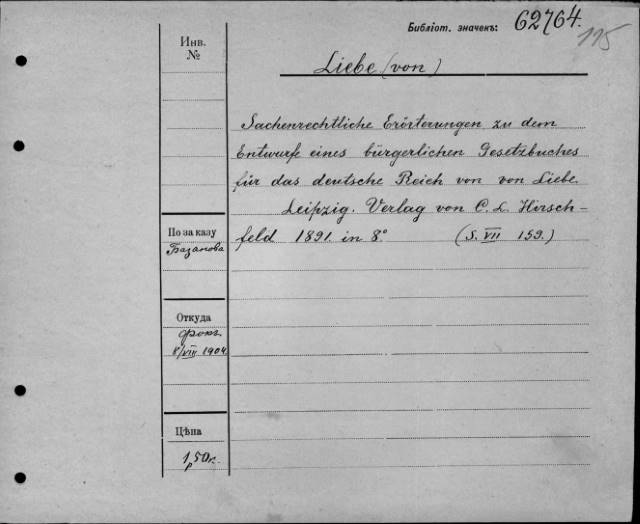 Библіот. значекъ: 62764.
115
Инв.
№
Liebe (von)
Sachenrechtliche Erörterungen zu dem
Entwurfe eines bürgerlichen Gesetzbuches
für das deutsche Reich von von Liebe.
Leipzig. Verlag von C. L. Hirsch-
feld 1891. in 8° (S. VII 159.)
По заказу
Базанова
Откуда
Фокъ
8/VIII 1904
Цѣна
1,50